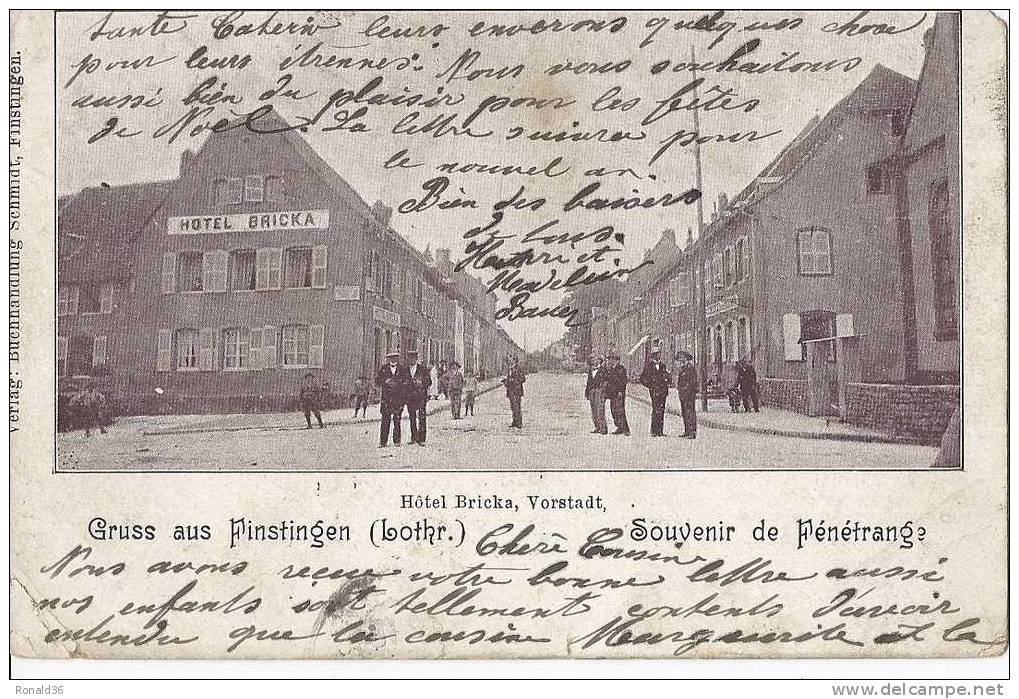 tante Caterin leurs enverons quelques chose
pour leurs étrennes. Nous vous souhaitons
aussi bien du plaisir pour les fêtes
de Noël. La lettre suivra pour
le nouvel an.
Bien des baisers
de tous.
Henri et
Madelein
Bauer
HOTEL BRICKA
Verlag: Buchhandlung Schmidt, Finstingen.
Hôtel Bricka, Vorstadt,
Gruss aus Finstingen (Lothr.) Souvenir de Fénétrange
Chère Cousine
Nous avons reçue votre bonne lettre aussi
nos enfants sont tellement contents d'avoir
entendu que la cousine Marguerite et la
Ronald36
www.delcampe.net